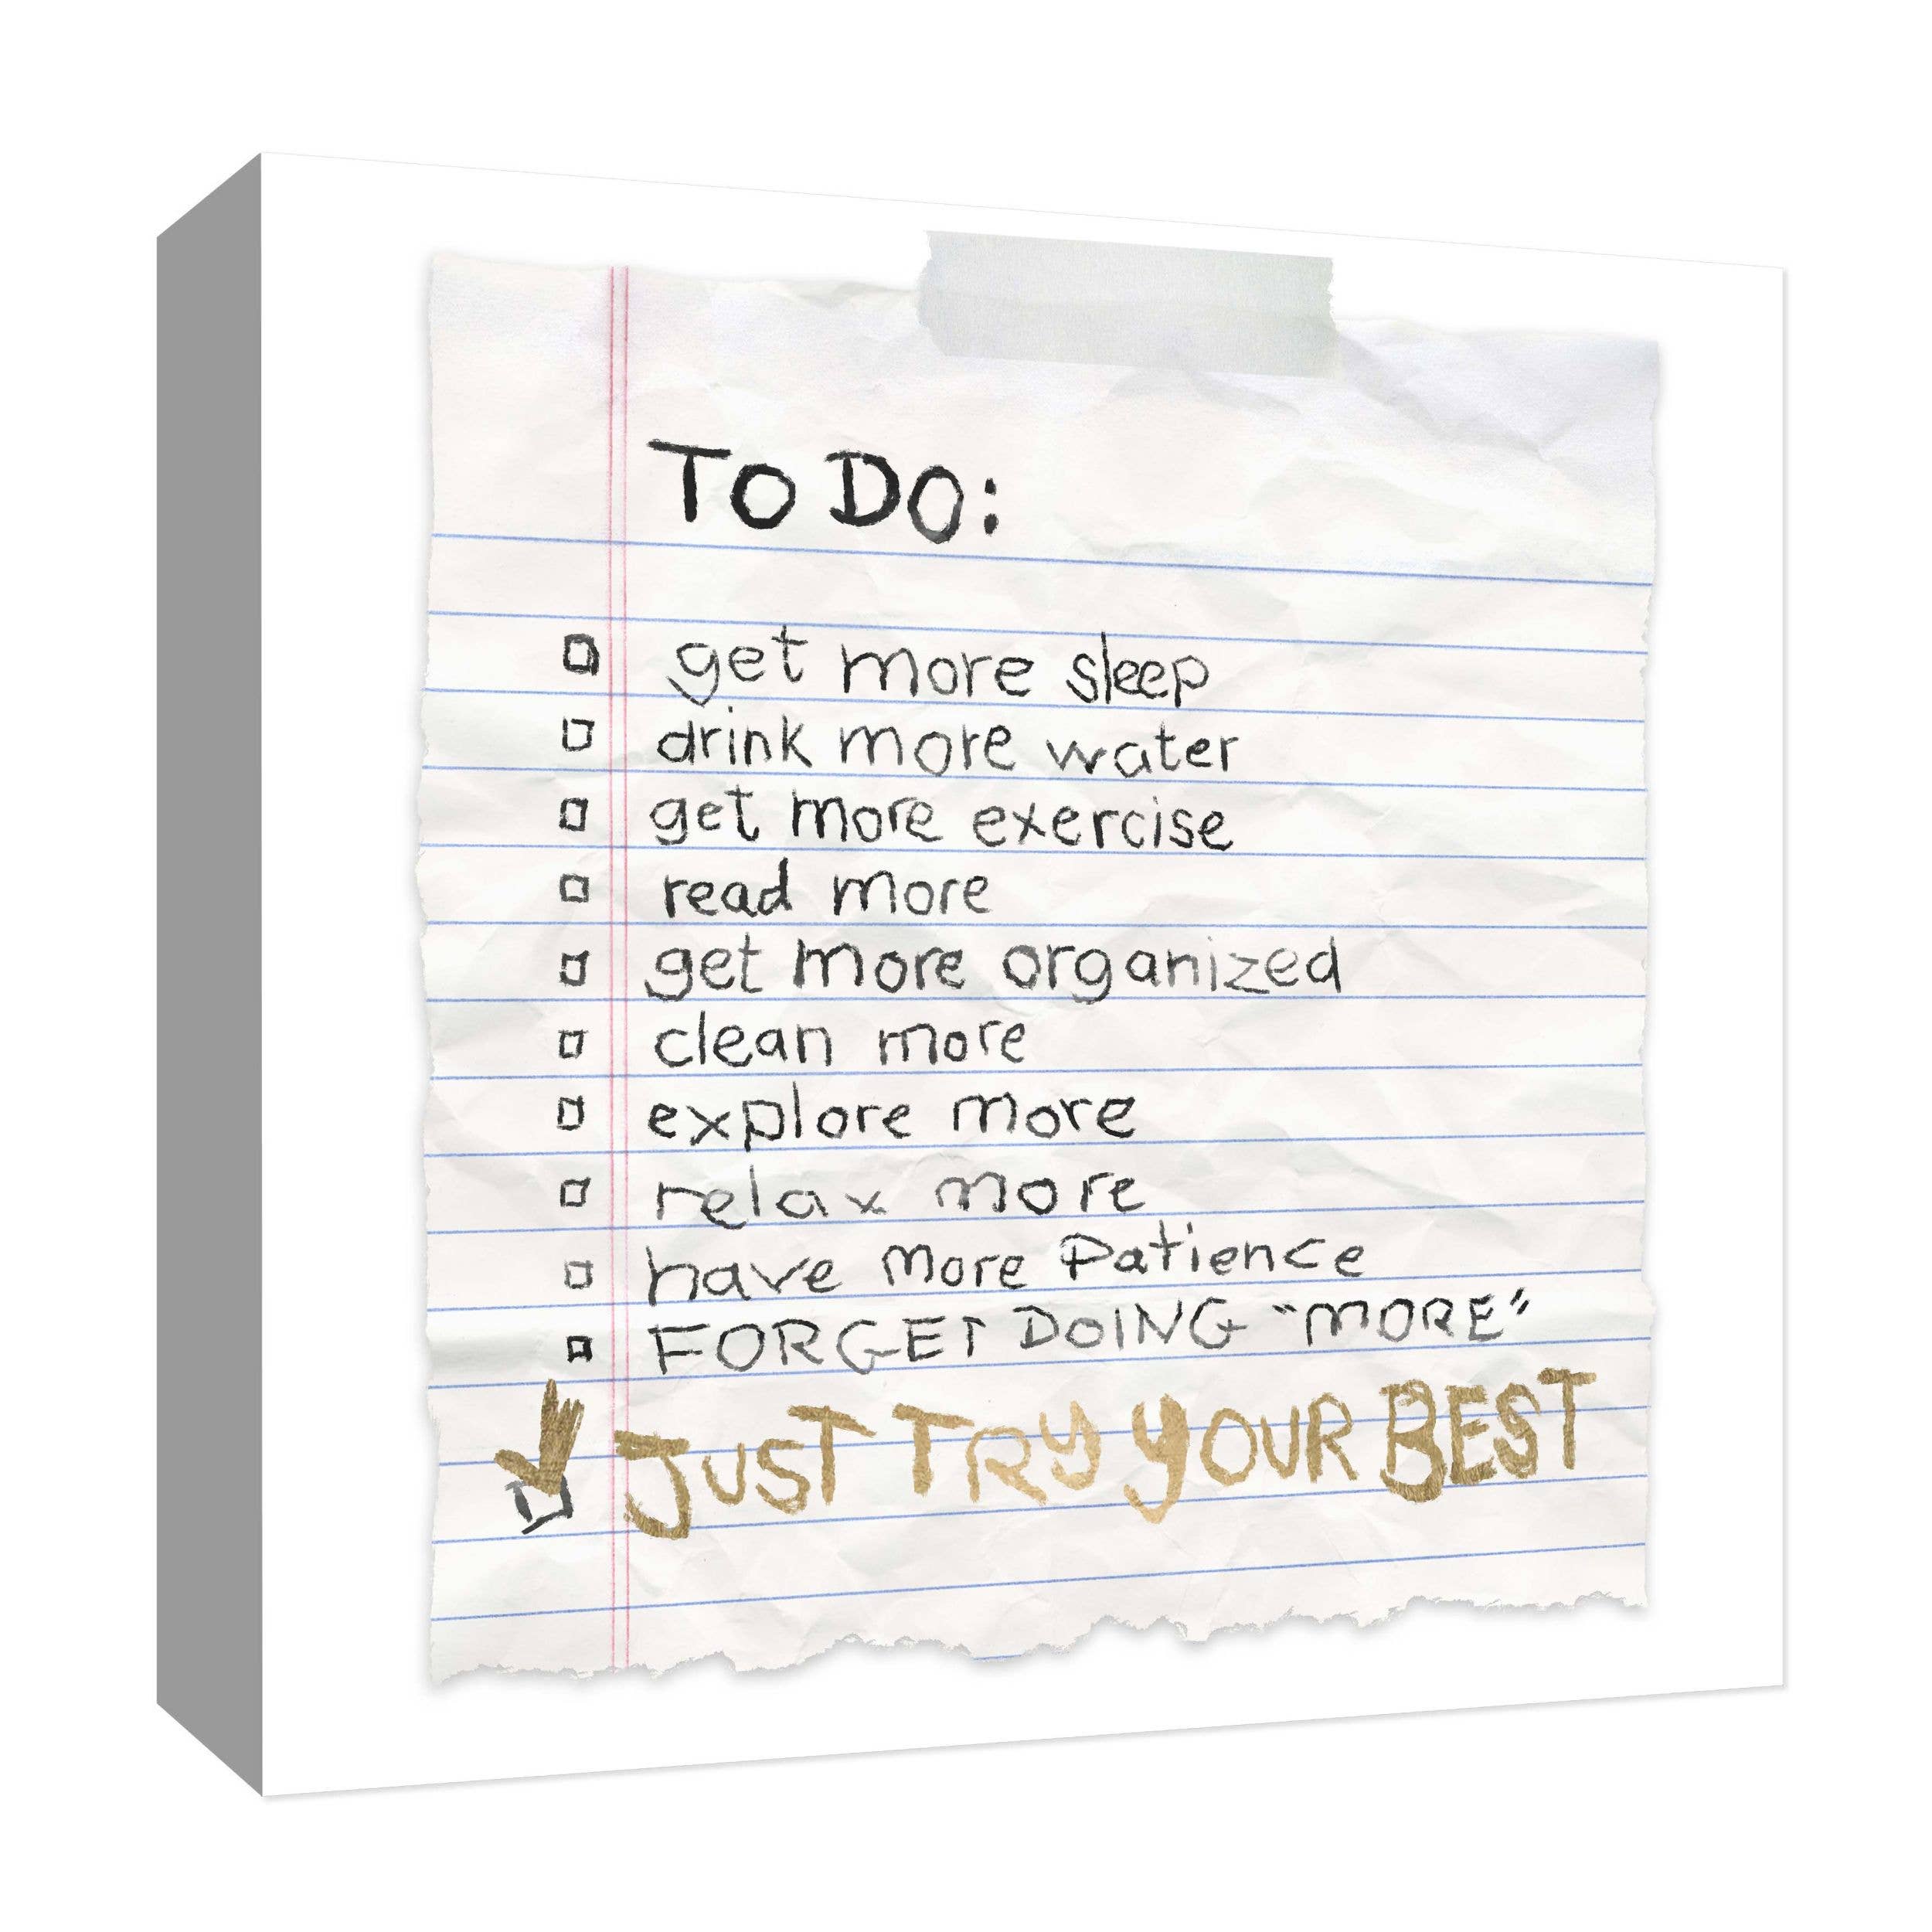 TO DO:
get more sleep
drink more water
get more exercise
read more
get more organized
clean more
explore more
relax more
have more Patience
FORGET DOING "MORE"
JUST TRY YOUR BEST